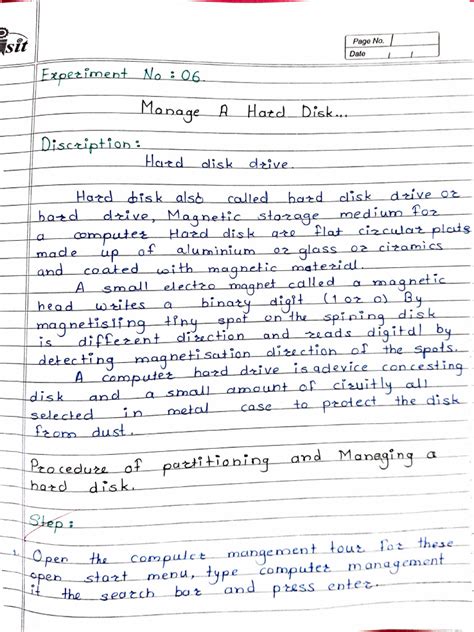 isit
Page No.
Date
Experiment No : 06.
Manage A Hard Disk...
Discription :
Hard disk drive.
Hard disk also called hard disk drive or
hard drive, Magnetic storage medium for
a computer Hard disk are flat circular plats
made up of aluminium or glass or ciramics
and coated with magnetic material.
A small electro magnet called a magnetic
head writes a binary digit (1 or 0) By
magnetisling tiny spot on the spining disk
is different direction and reads digital by
detecting magnetisation direction of the spots.
A computer hard drive is adevice concesting
disk and a small amount of ciruitly all
selected in metal case to protect the disk
from dust.
Procedure of partitioning and Maneging a
hard disk.
Step :
1. Open the compuler mangement tour for these
open start menu, type computer management
if the search bar and press enter.